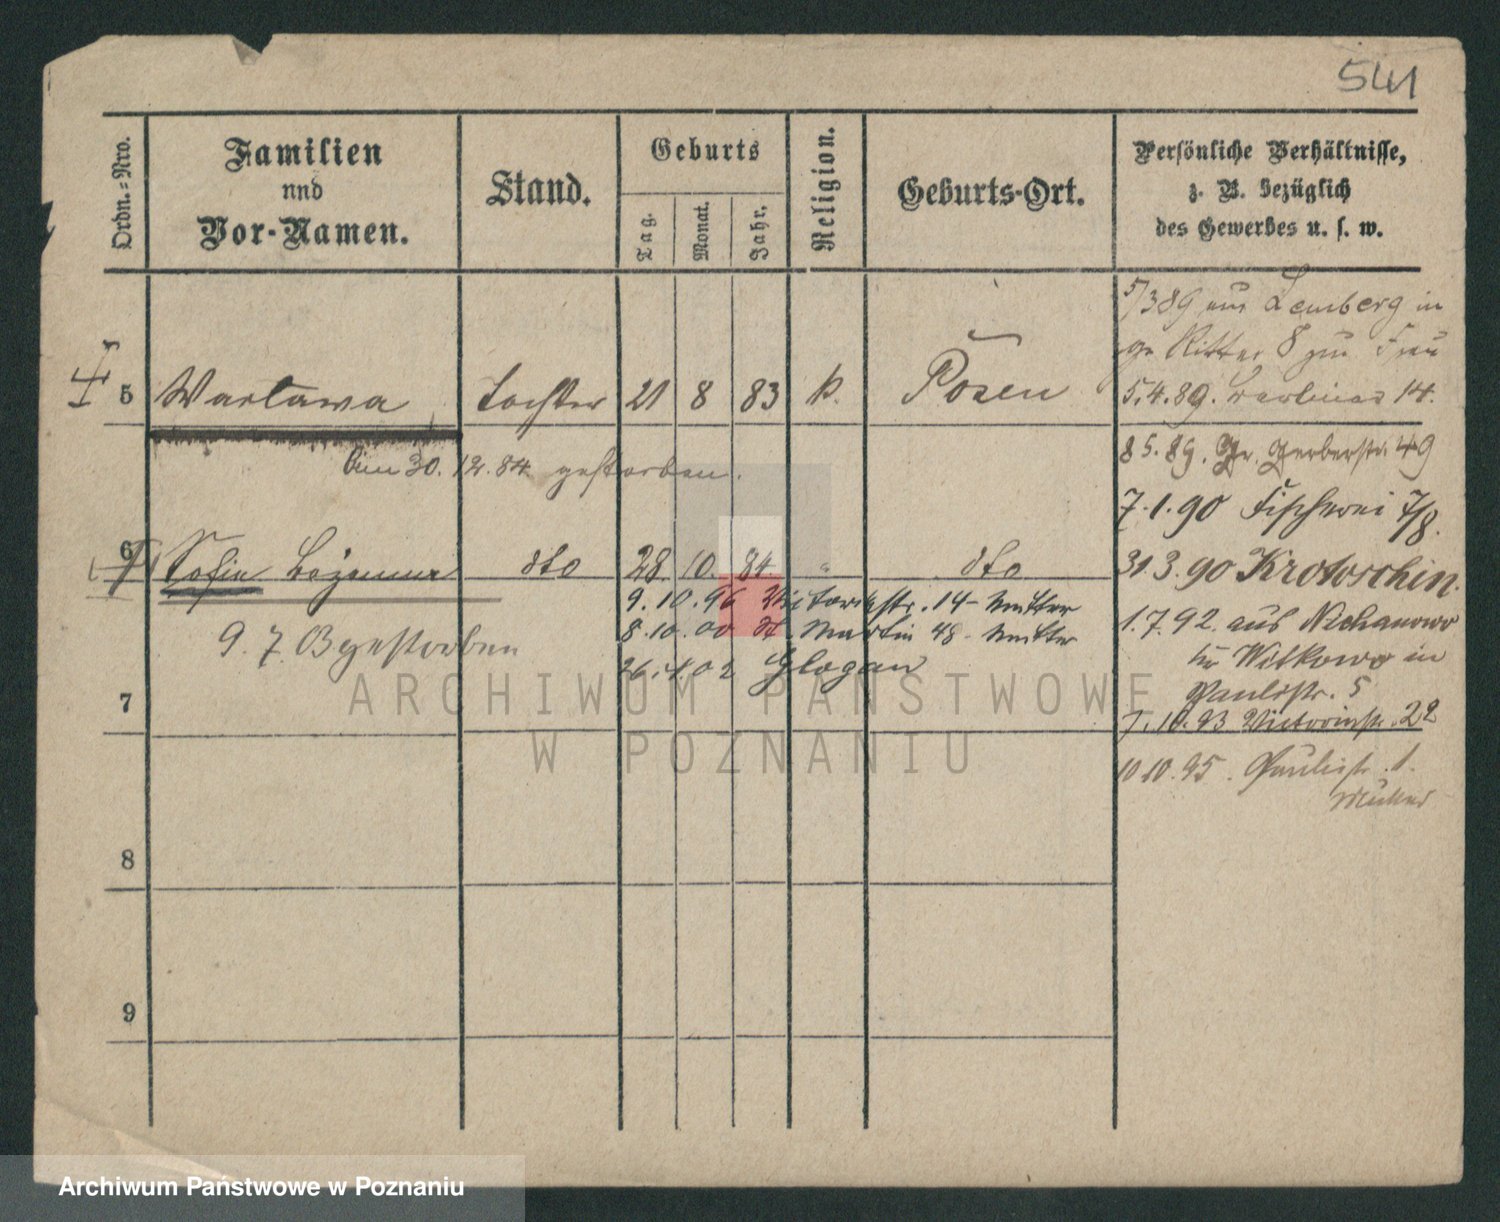 541
Ordn.-Nro.
Familien
und
Vor-Namen.
Stand.
Geburts
Tag.
Monat.
Jahr.
Religion.
Geburts-Ort.
Persönliche Verhältnisse,
z. B. bezüglich
des Gewerbes u. s. w.
5 Warlawa Tochter 21 8 83 k. Posen
am 30.12.84 gestorben.
6 Sofia dto 28 10. 84 " dto
9.7.03 gestorben
9.10.96 Victoriastr. 14 - Mutter
8.10.00 St. Martin 48 - Mutter
26.4.02 Glogau
7
8
9
5/3 89 aus Lemberg in
gr Ritter 8 zur Frau
5.4.89. 14.
8 5.89. Gr. Gerberstr. 49
7.1.90 Fischerei 7/8.
31.3.90 Krotoschin.
1.7.92. aus Nichanowo
Witkowo in
Paulistr. 5
7.10.93 Victoriastr. 22
10.10.95. Paulistr. 1.
Mutter
ARCHIWUM PAŃSTWOWE
W POZNANIU
Archiwum Państwowe w Poznaniu